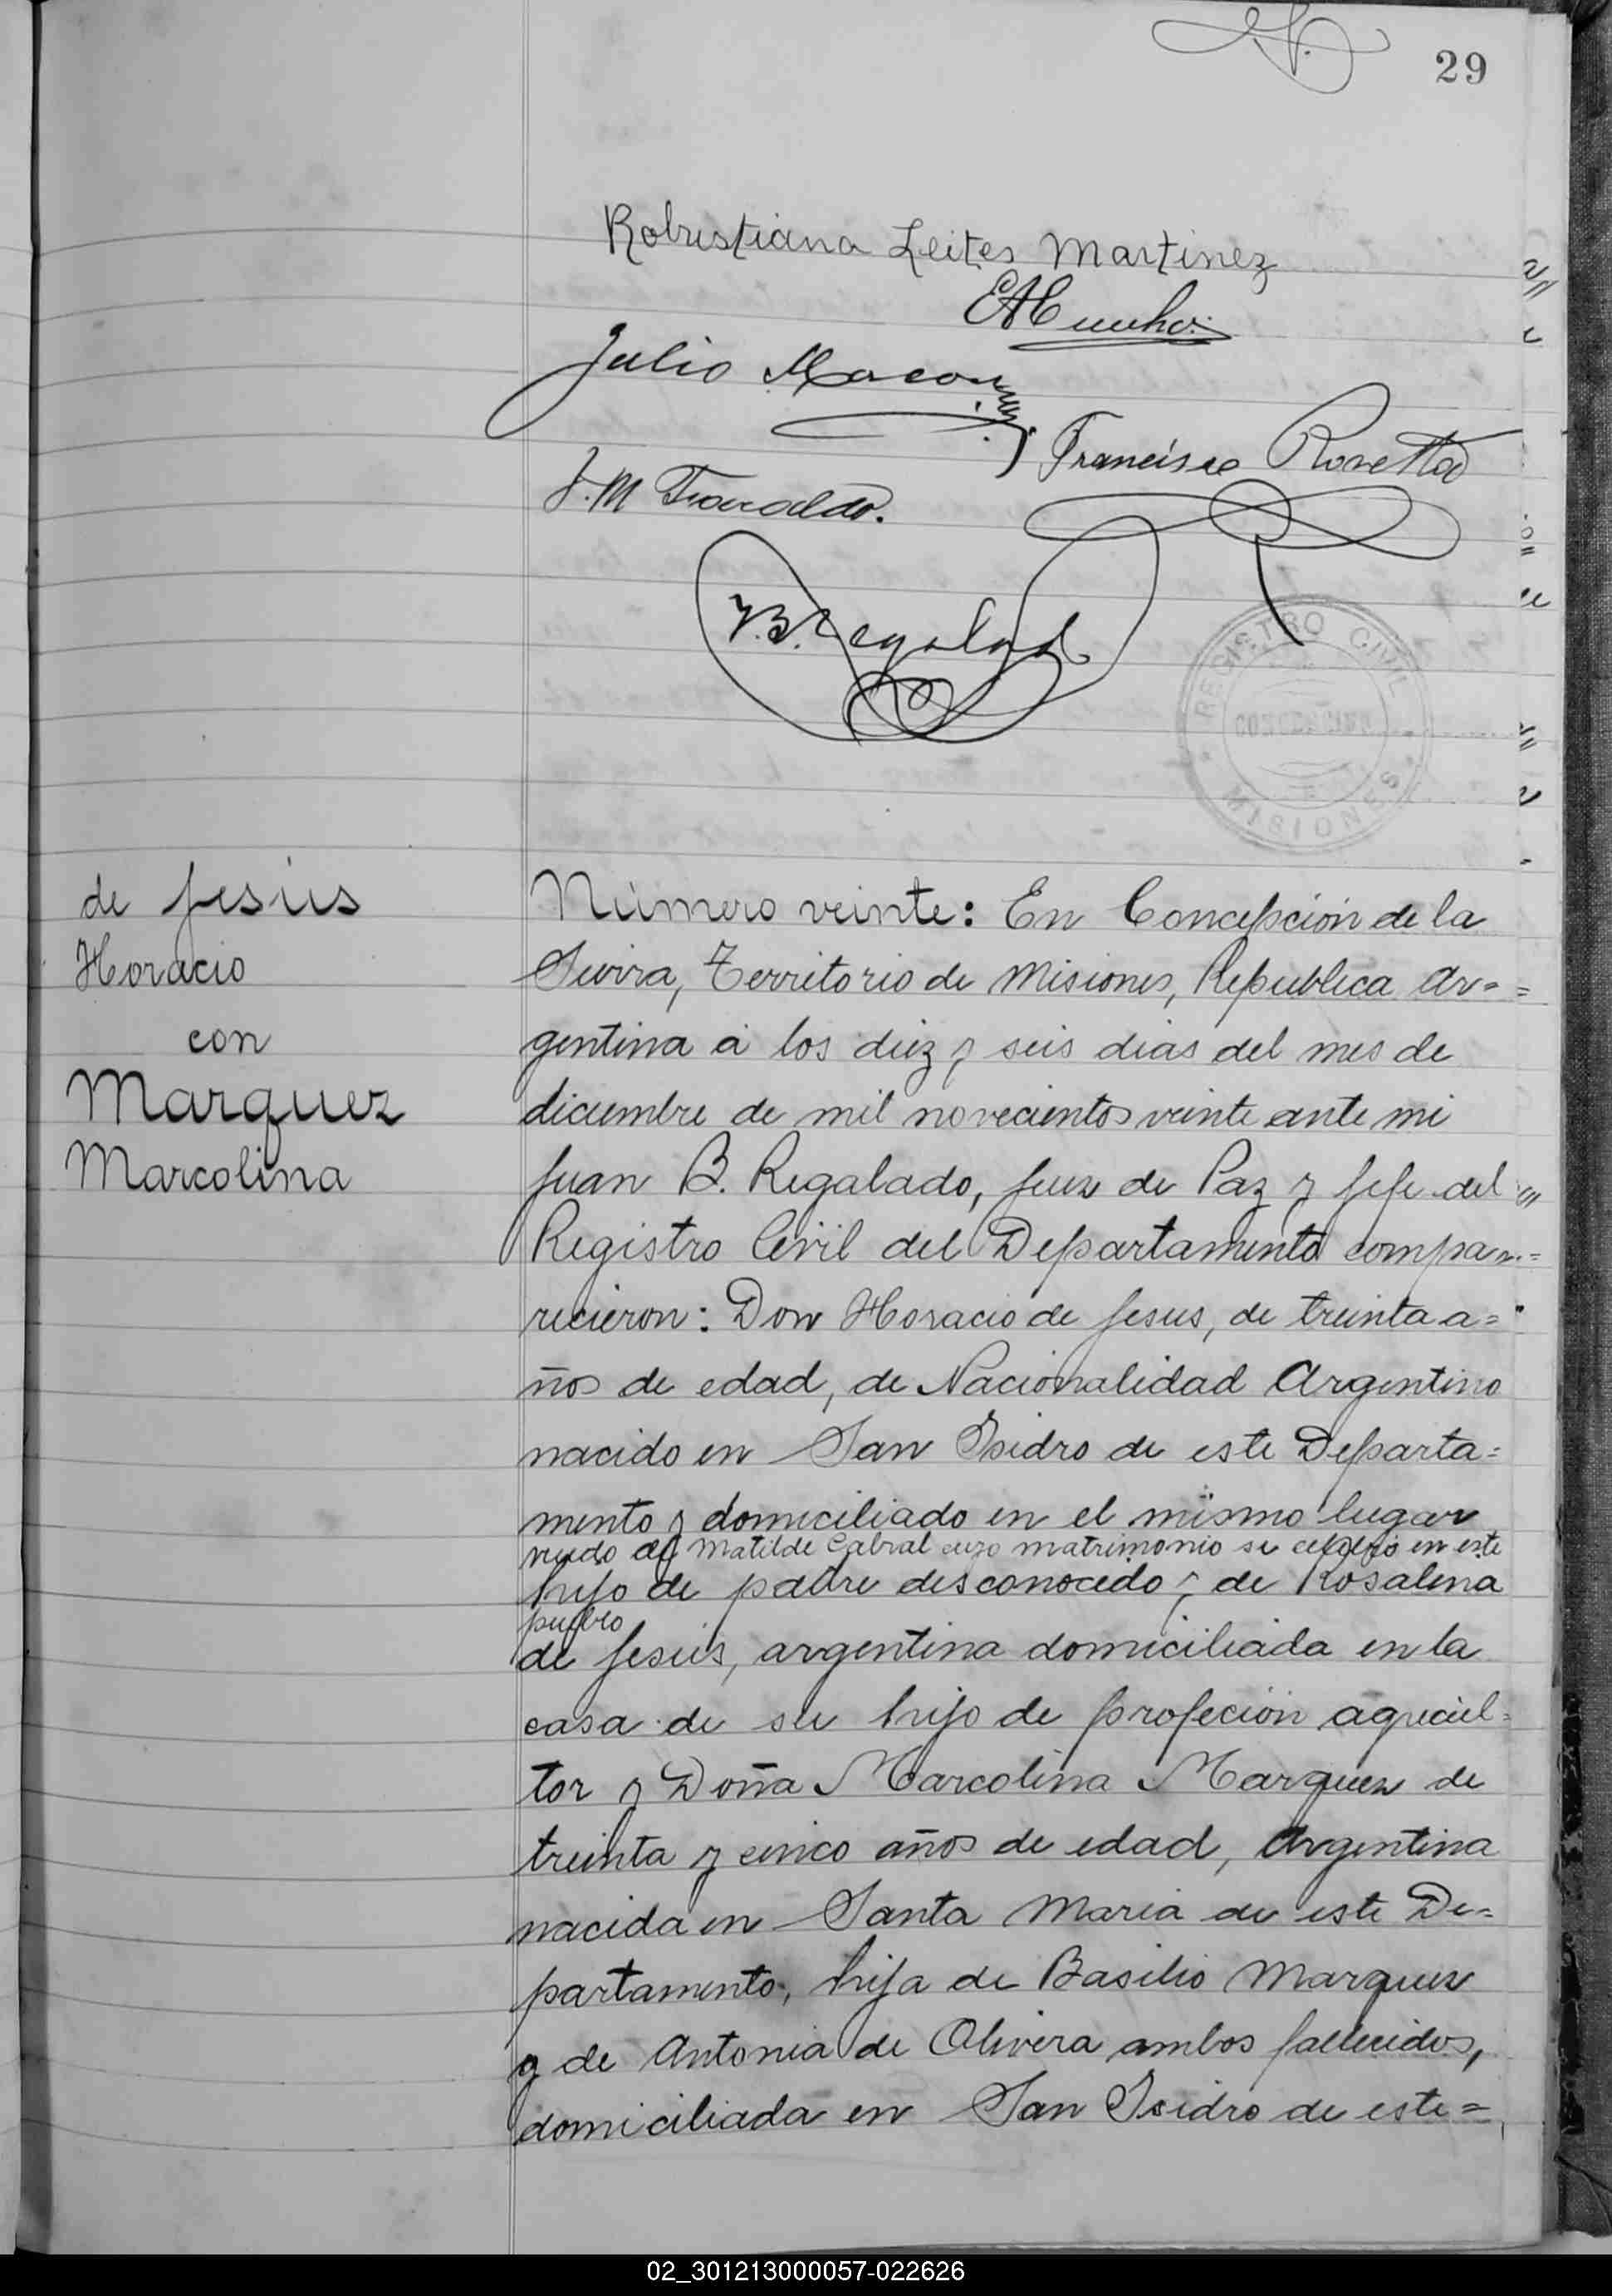 29
Robustiana Leites Martinez
Julio
Francisco
J. M
J. B. Regalado
REGISTRO CIVIL
CONCEPCION
MISIONES
de Jesús
Horacio
con
Marquez
Marcolina
Número veinte: En Concepción de la
Sierra, Territorio de Misiones, Republica Ar=
gentina á los diez y seis dias del mes de
diciembre de mil novecientos veinte ante mi
Juan B. Regalado, Juez de Paz y Jefe del
Registro Civil del Departamento compa=
recieron: Don Horacio de Jesus, de treinta a=
ños de edad, de Nacionalidad Argentino
nacido en San Isidro de este Departa=
mento y domiciliado en el mismo lugar
viudo de Matilde Cabral cuyo matrimonio se celebró en este
hijo de padre desconocido y de Rosalina
pueblo
de Jesús, argentina domiciliada en la
casa de su hijo de profeción agricul=
tor y Doña Marcolina Marquez de
treinta y cinco años de edad, Argentina
nacida en Santa Maria de este De=
partamento, hija de Basilio Marquez
y de Antonia de Olivera ambos fallecidos,
domiciliada en San Isidro de este=
02_301213000057-022626